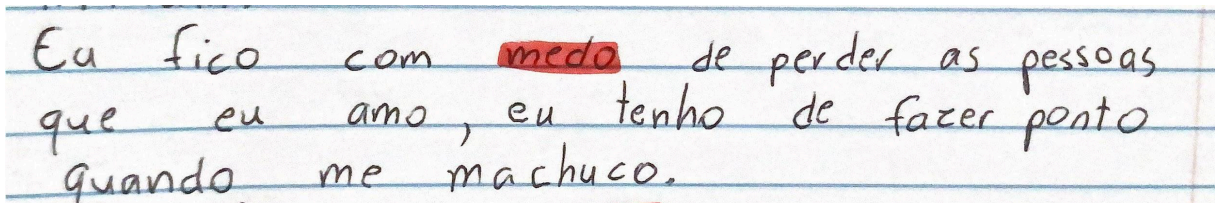 Eu fico com medo de perder as pessoas
que eu amo, eu tenho de fazer ponto
quando me machuco.